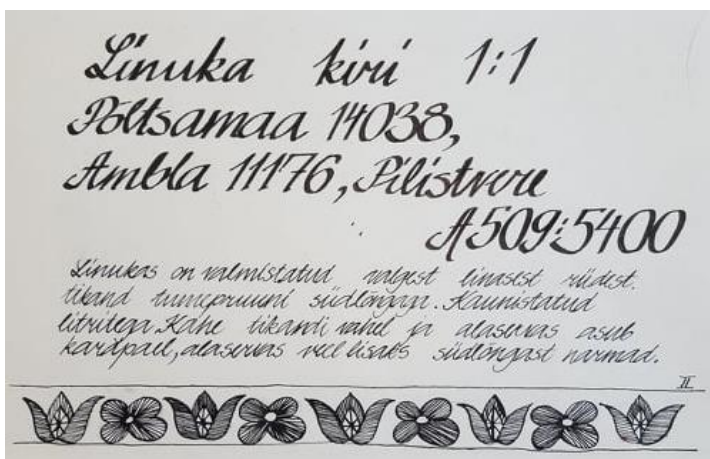 Linuka kiri 1:1
Põltsamaa 14038,
Ambla 11176, Pilistvere
A509:5400
Linukas on valmistatud valgest linasest riidest.
tikand tumepruuni siidlõngaga. Kaunistatud
litritega. Kahe tikandi vahel ja alaservas asub
kardpael, alaservas veel lisaks siidlõngast narmad.
II